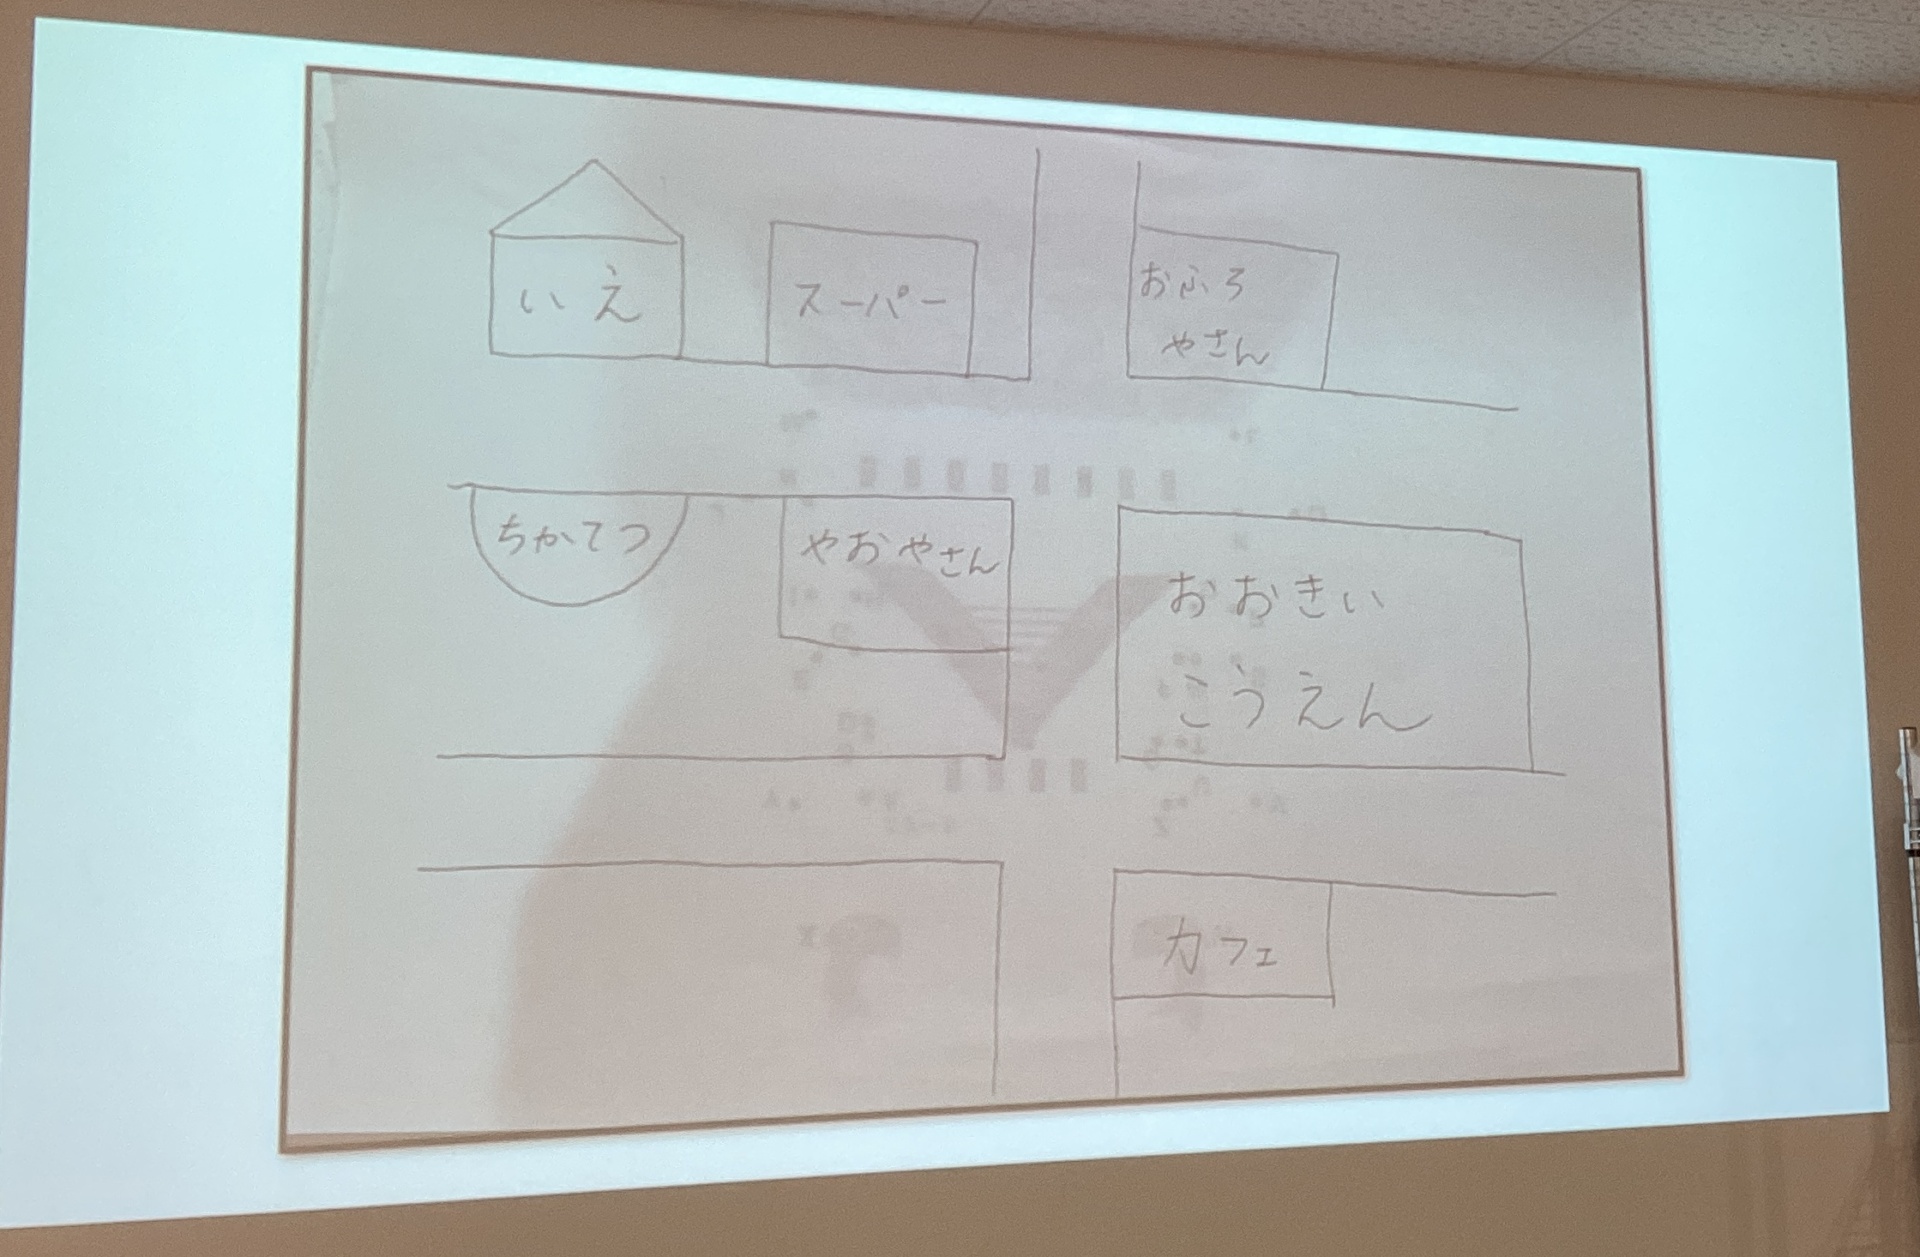 いえ
スーパー
おふろ
やさん
ちかてつ
やおやさん
おおきい
こうえん
カフェ